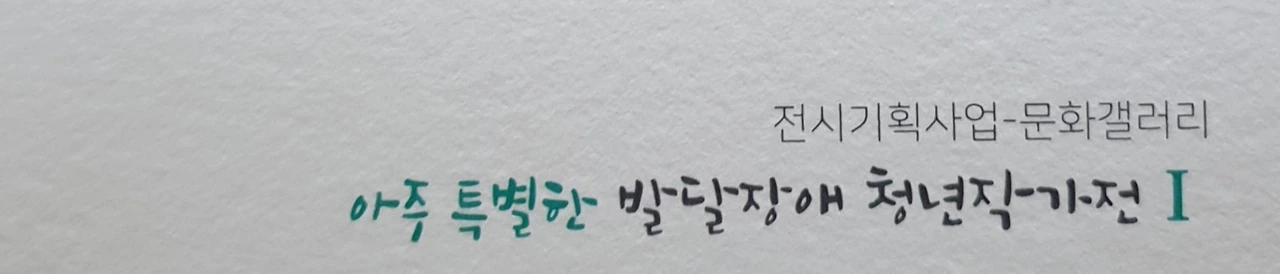 전시기획사업-문화갤러리
아주 특별한 발달장애 청년작가전 I